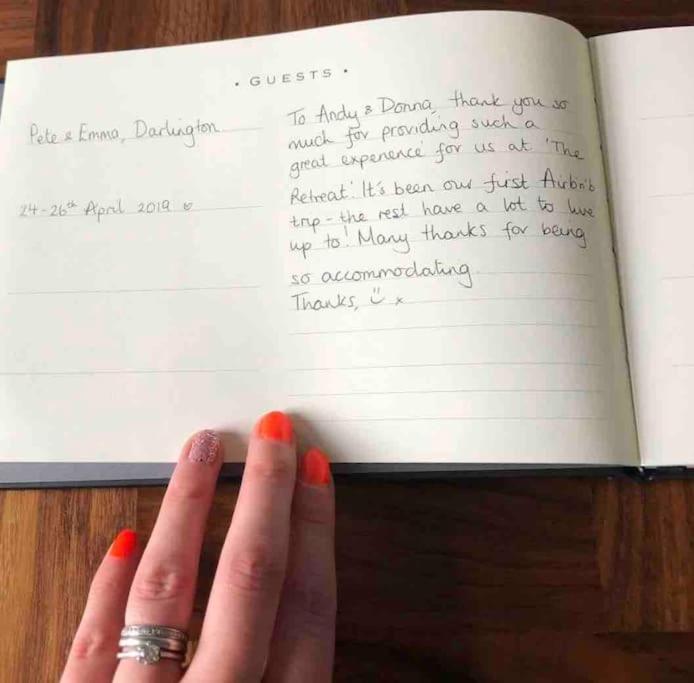 • GUESTS •
Pete & Emma, Darlington
24-26th April 2019 ♡
To Andy & Donna, thank you so
much for providing such a
great experience for us at 'The
Retreat'. It's been our first Airbnb
trip - the rest have a lot to live
up to! Many thanks for being
so accommodating.
Thanks, :) x